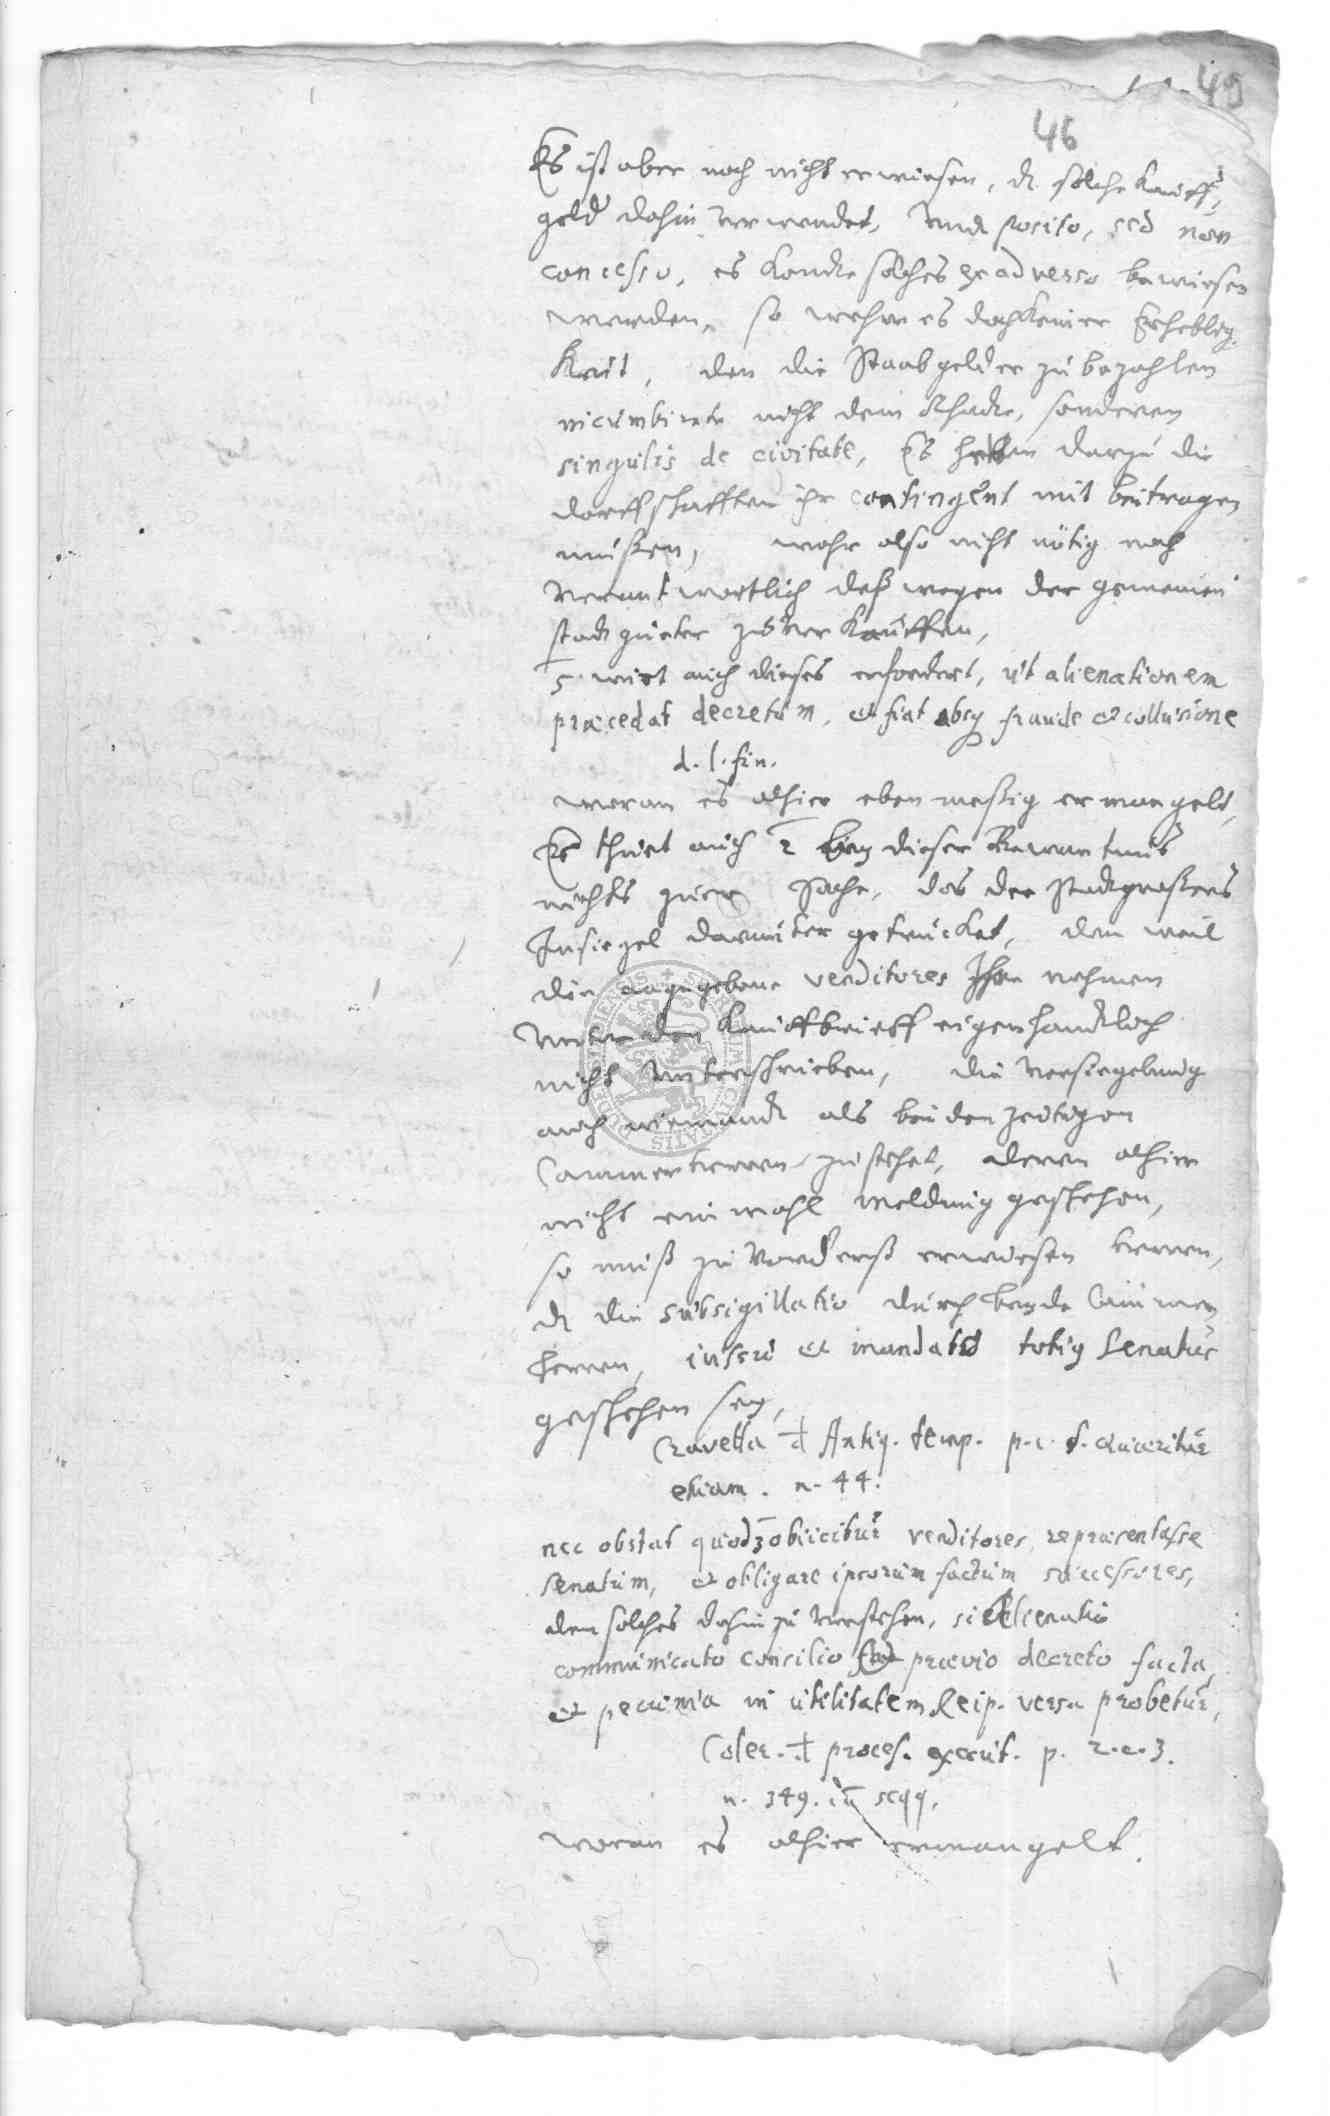 49
46
Es ist aber noch nicht erwiesen, dz solche Kauff
geld dahin verwendet, Undt posito, sed non
concesso, es konte solches ex adverso bewiesen
werden, so wehre es doch keiner Erheblig
keit, den die Staabgelder zu bezahlen
incumbirete nicht dem Rhade, sonderen
singulis de civitate, Es hetten darzu die
dorffschafften ihr contingent mit beitragen
mußen, wahr also nicht nötig noch
verantwortlich deßwegen der gemeinen
stadt gueter zu verkauffen,
5. wirt auch dieses erfordert, ut alienationem
præcedat decretum, et fiat absq fraude et collusione
d. l. fin.
woran es alhier eben meßig ermangelt,
Es thuet auch bey dieser Bewantnus
nichts zuer Sache, das der Stadt großers
Insiegel darunter getrucket, den weil
die angegebene venditores Ihre nahmen
unter den Kauffbrieff eigenhandtlich
nicht unterschrieben, die versiegelung
auch niemandt als beiden zeitigen
Cammerherren zustehet, deren alhier
nicht einmahl meldung geschehen,
so muß zu vorderst erwiesen werden,
dz die subsigillatio durch beyde Cammer
herren, iussu et mandato totiq Senatus
geschehen sey,
Cravetta d Antiq. temp. p. 1. §. quæritur
etiam. n. 44.
nec obstat quod obiicitur venditores repræsentasse
Senatum, et obligare ipsorum factum successores,
den solches dahin zu verstehen, si alienatio
communicato consilio prævio decreto facta,
et pecunia in utilitatem Reip. versa probetur,
Coler. d proces. execut. p. 2. c. 3.
n. 349. cu seqq.
woran es alhier ermangelt.